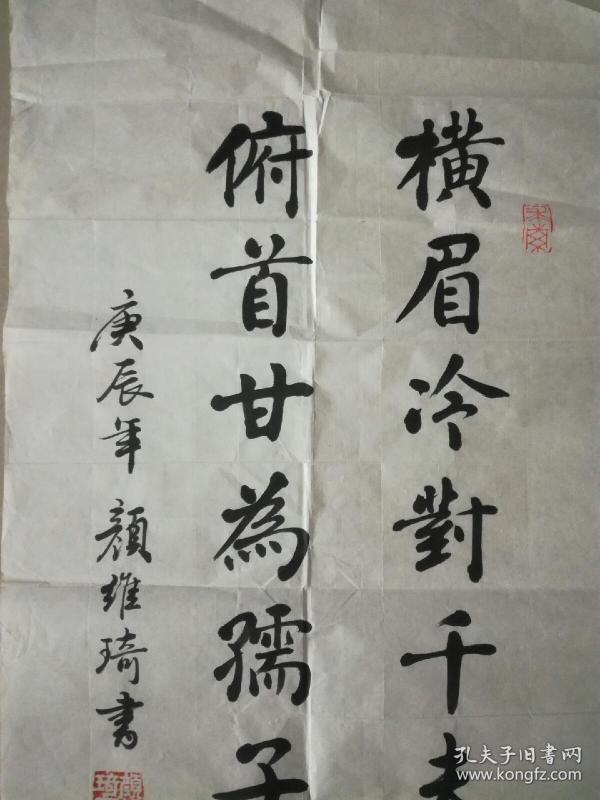 横眉冷對千
俯首甘為孺子
庚辰年 顏維琦書
孔夫子旧书网
www.kongfz.com